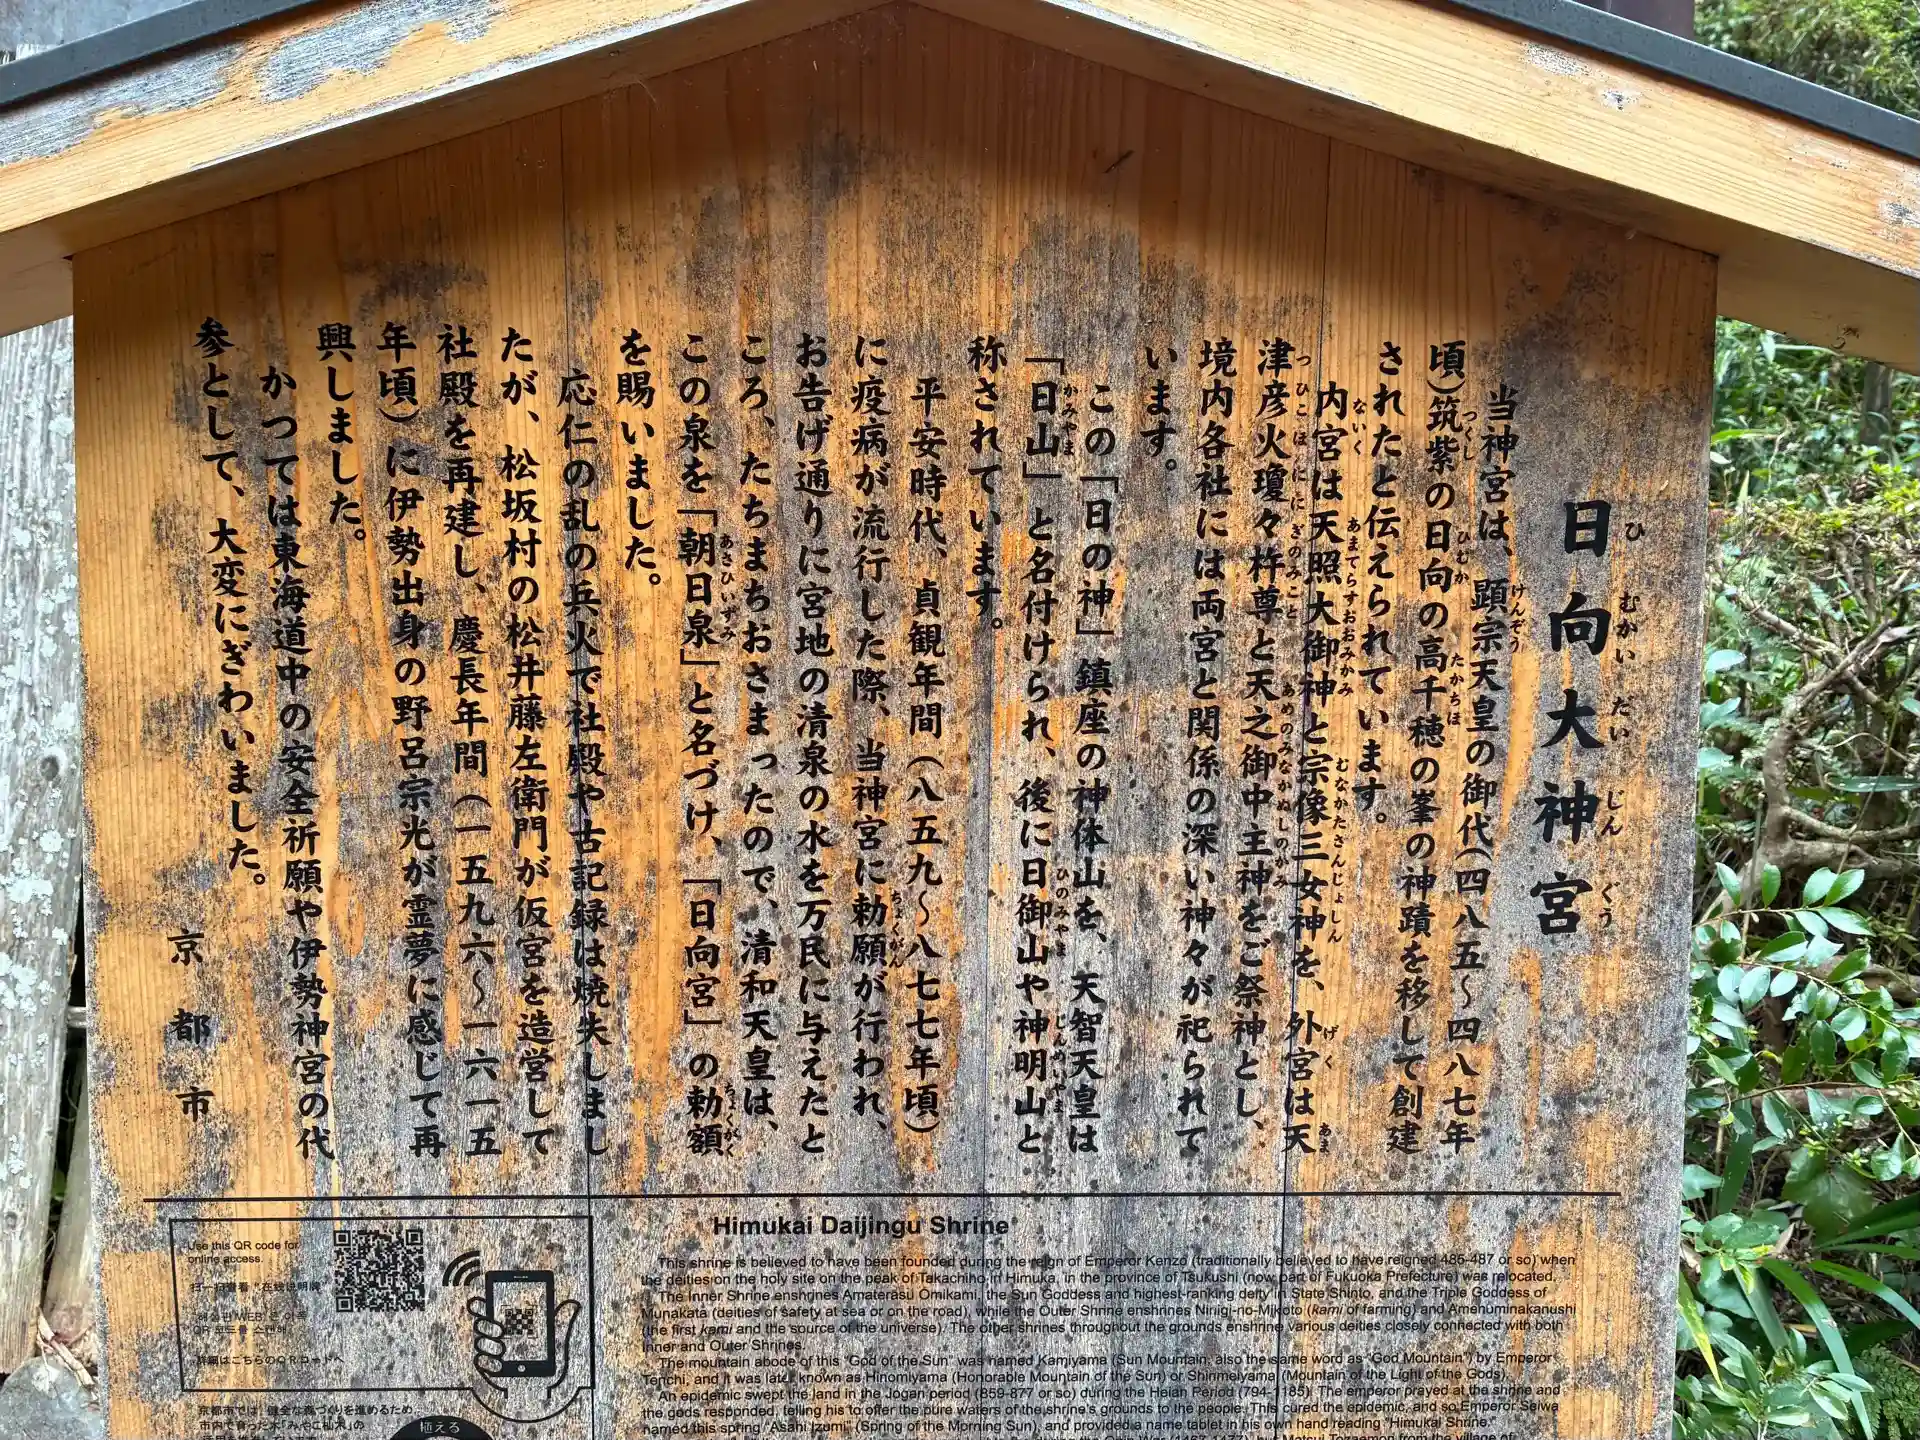 日向大神宮
ひ むかい だい じん ぐう
当神宮は、顕宗天皇の御代(四八五〜四八七年
頃)筑紫の日向の高千穂の峯の神蹟を移して創建
されたと伝えられています。
内宮は天照大御神と宗像三女神を、外宮は天
津彦火瓊々杵尊と天之御中主神をご祭神とし、
境内各社には両宮と関係の深い神々が祀られて
います。
この「日の神」鎮座の神体山を、天智天皇は
「日山」と名付けられ、後に日御山や神明山と
称されています。
平安時代、貞観年間(八五九〜八七七年頃)
に疫病が流行した際、当神宮に勅願が行われ、
お告げ通りに宮地の清泉の水を万民に与えたと
ころ、たちまちおさまったので、清和天皇は、
この泉を「朝日泉」と名づけ、「日向宮」の勅額
を賜いました。
応仁の乱の兵火で社殿や古記録は焼失しまし
たが、松坂村の松井藤左衛門が仮宮を造営して
社殿を再建し、慶長年間(一五九六〜一六一五
年頃)に伊勢出身の野呂宗光が霊夢に感じて再
興しました。
かつては東海道中の安全祈願や伊勢神宮の代
参として、大変にぎわいました。
京都市
Use this QR code for
online access.
扫一扫查看"在线说明牌"
QR 코드를 스캔해
詳細はこちらのQRコードへ
京都市では、健全な森づくりを進めるため、
市内で育った木「みやこ杣木」の
植える
Himukai Daijingu Shrine
This shrine is believed to have been founded during the reign of Emperor Kenzo (traditionally believed to have reigned 485-487 or so) when
the deities on the holy site on the peak of Takachiho in Himuka, in the province of Tsukushi (now part of Fukuoka Prefecture) was relocated.
The Inner Shrine enshrines Amaterasu Omikami, the Sun Goddess and highest-ranking deity in State Shinto, and the Triple Goddess of
Munakata (deities of safety at sea or on the road), while the Outer Shrine enshrines Ninigi-no-Mikoto (kami of farming) and Amenuminakanushi
(the first kami and the source of the universe). The other shrines throughout the grounds enshrine various deities closely connected with both
Inner and Outer Shrines.
The mountain abode of this "God of the Sun" was named Kamiyama (Sun Mountain, also the same word as "God Mountain") by Emperor
Tenchi, and it was later known as Hinomiyama (Honorable Mountain of the Sun) or Shinmeiyama (Mountain of the Light of the Gods).
An epidemic swept the land in the Jogan period (859-877 or so) during the Heian Period (794-1185). The emperor prayed at the shrine and
the gods responded, telling his to offer the pure waters of the shrine's grounds to the people. This cured the epidemic, and so Emperor Seiwa
named this spring "Asahi Izumi" (Spring of the Morning Sun), and provided a name tablet in his own hand reading "Himukai Shrine."